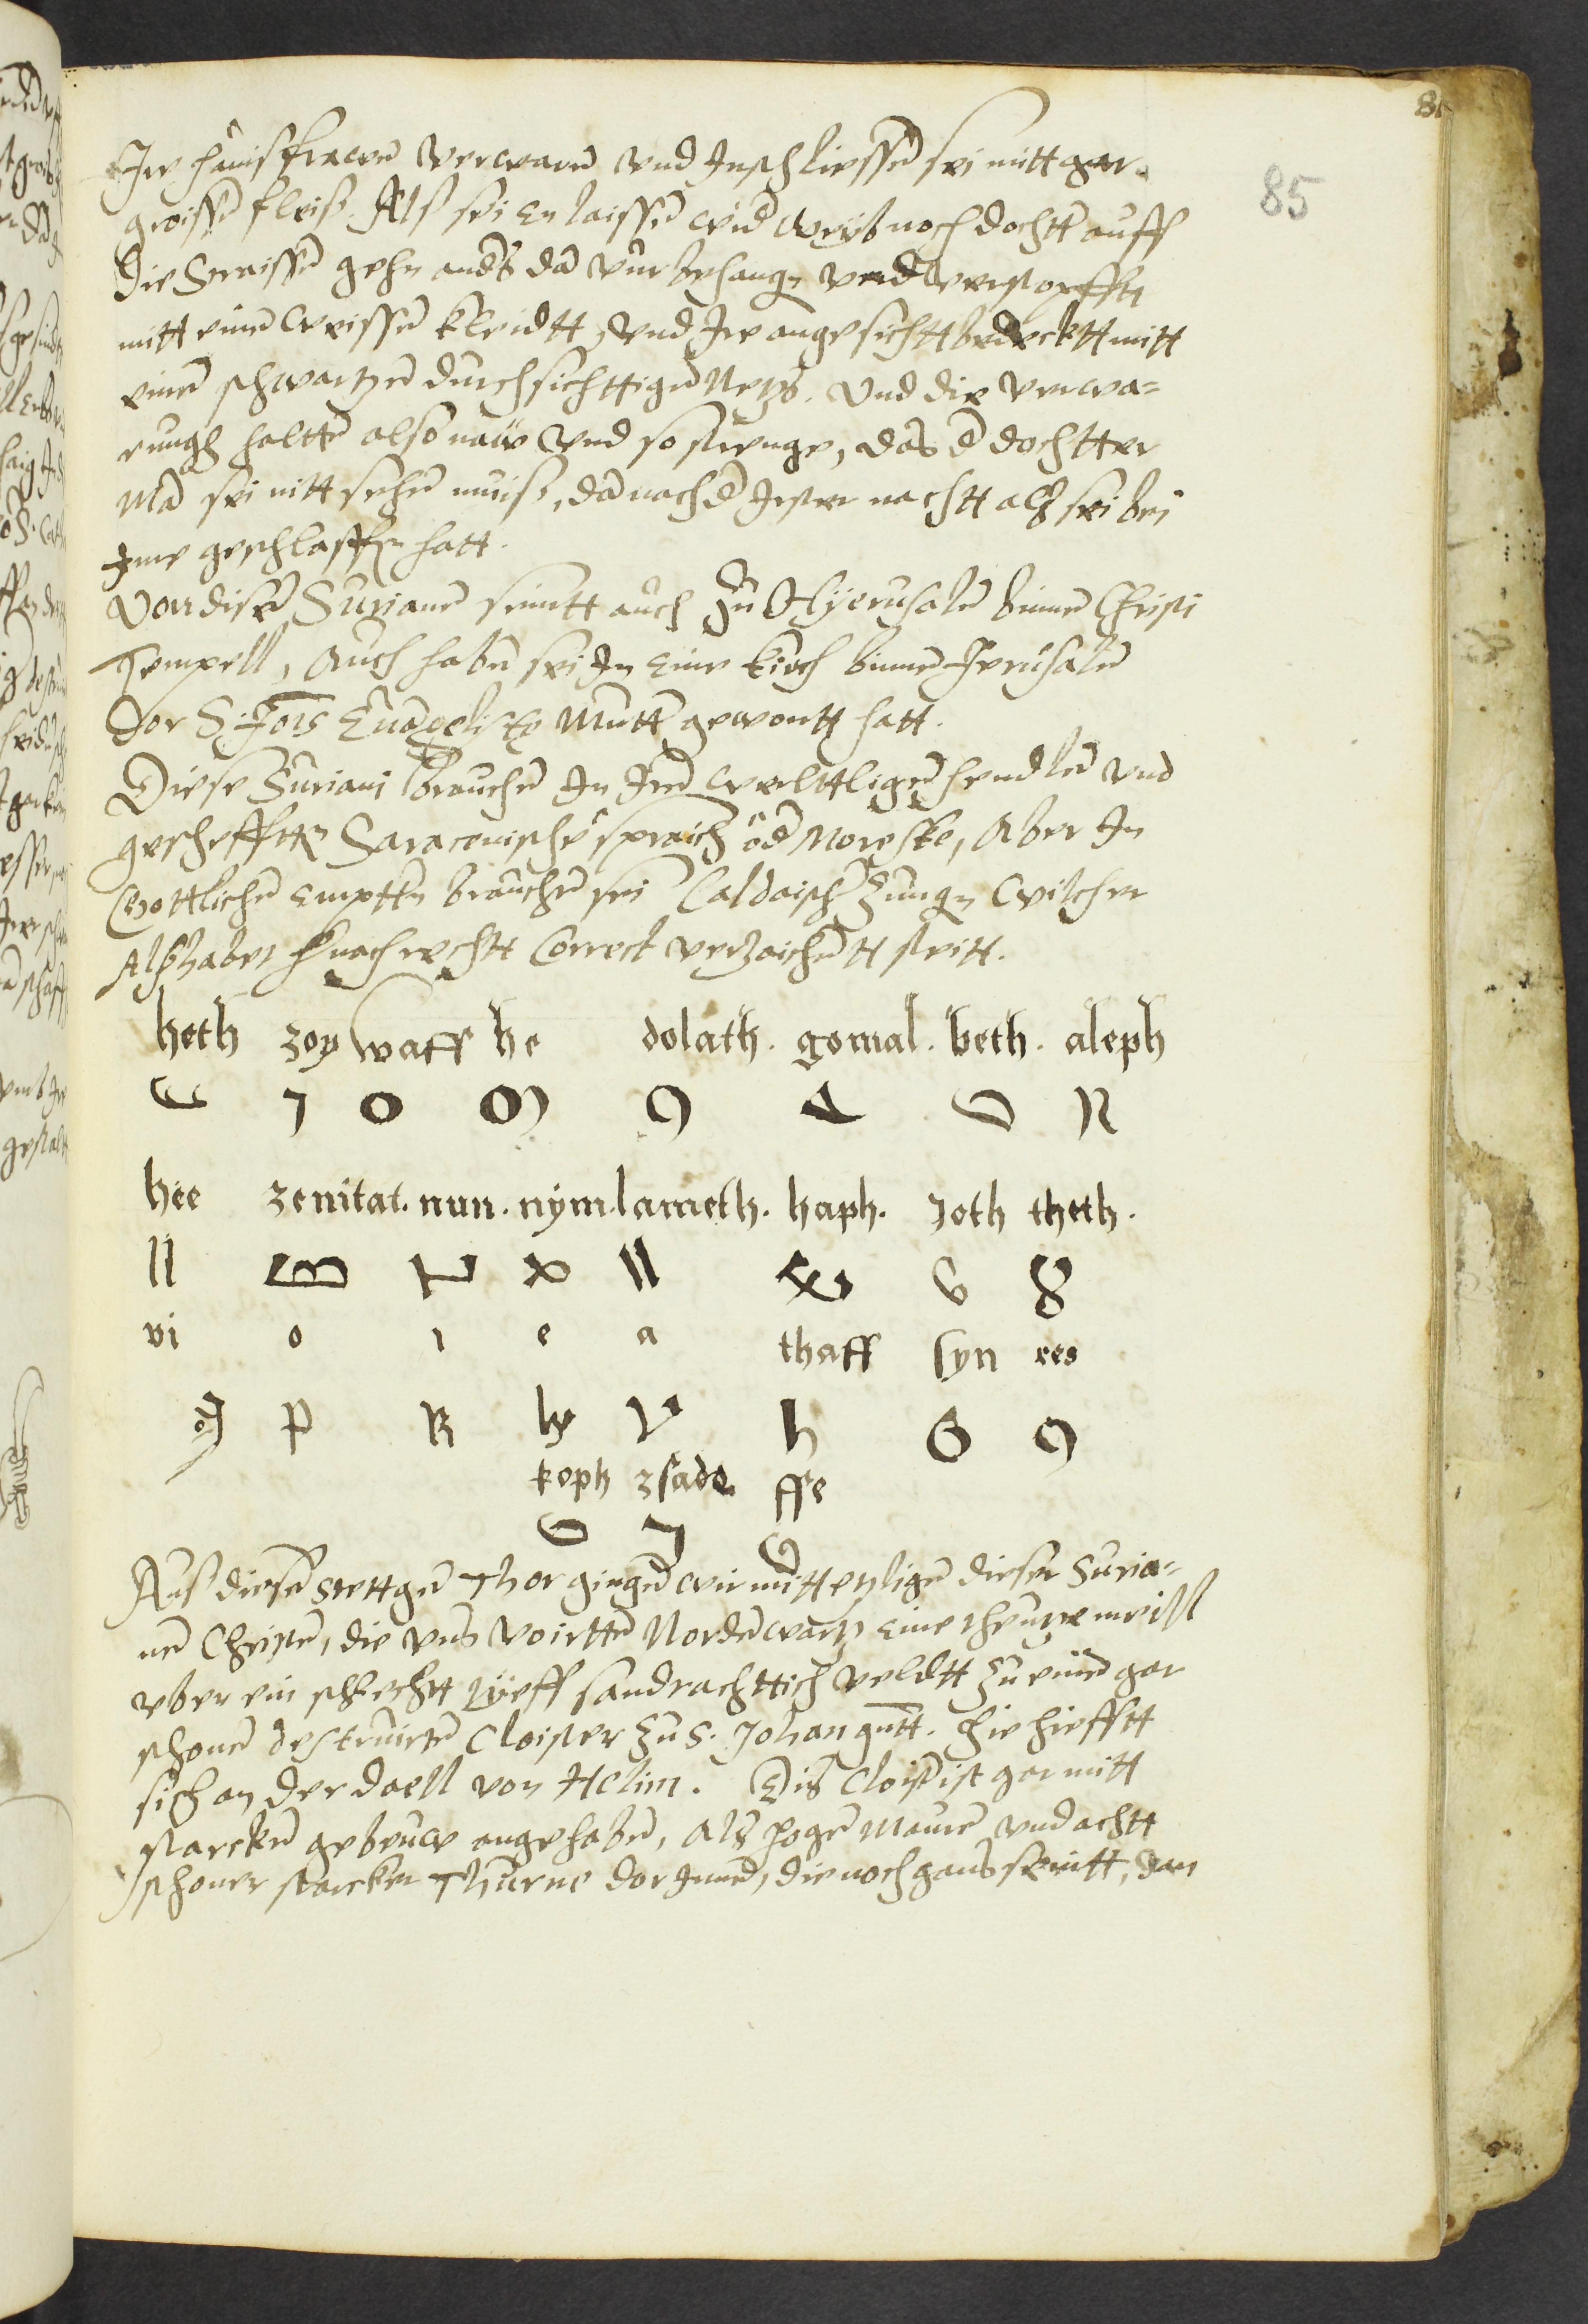 81
85
Ire hausfrawen verwaren vnd Inschliessen sei mitt gar
groissen fleiß. Als sei en laissen wed weib noch dochtter auff
die Straissen gehn anders dan vur behangen vnd verstopfft
mitt einen weissen kleidtt, vnd Ire angesichtt bedecktt mitt
einen schwartzen durchsichttigen Netzs. Vnd die verwa-
rungh haltten also naw vnd so strenge, das der dochtter
Man sei nitt sehen muiß, dan nach der Irster nachtt als sei bei
Ime geschlaffen hatt.
Von disen Surianen seintt auch zu Hyerusalem binnen Christi
Tempell, Auch haben sei In eine kirch binnen Jerusalem
dor S. Jois Euangelisten Mutter gewontt hatt.
Diese Suriani brauchen In Iren welttligen hendlen vnd
geschefften Saracenische spraich oder Moreske, Aber In
Gottlichen emptten brauchen sei Caldaisch Zungen wilcher
Alphabet hernach rechtt Correct verzaichentt steitt.
heth zoy waff he dolath. gomal. beth. aleph
hee zenitat. nun. nym. lameth. kaph. Joth theth.
vi o i e a thaff syn res
koph zsade ffe
Aus diesen stettgen Thor gingen wir mitt etzligen dieser Suria-
nen Christen, die vns voirtten Nordenwartz eine theutze meill
vber ein schlechtt sandrachttich veldtt zu einen gar
schonen destruirten Cloister zu S. Johan gntt. Hie hiefftt
sich an der daell von Helim. Dis Cloister ist gar mitt
starcken gebeuw angehaben, Als hogen Mauren vnd achtt
schoner starcker Thurne dor Innen, die noch gans seintt, dan